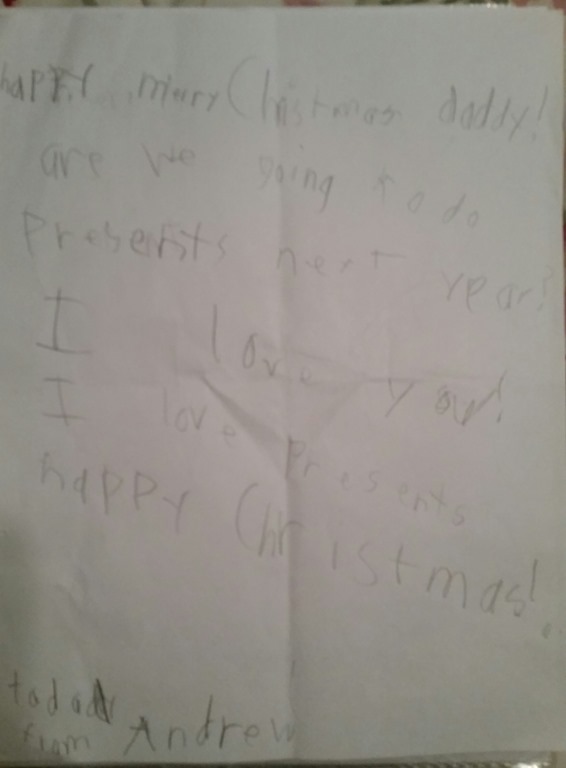 happy mary Christmas daddy!
are we going to do
presents next year?
I love you!
I love presents
happy Christmas!
from Andrew